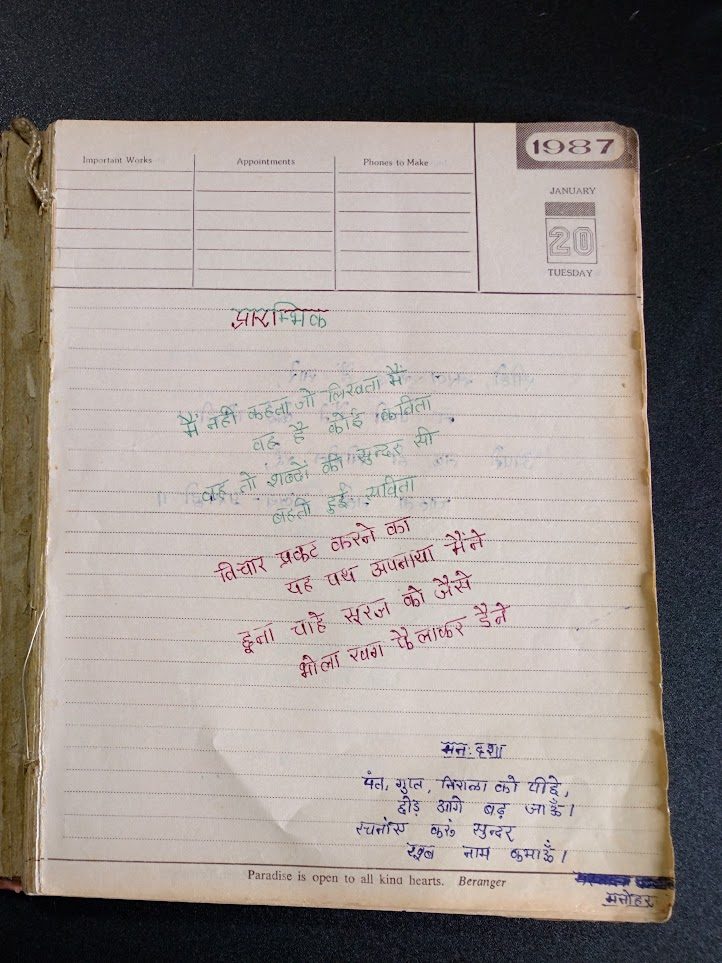 1987
Important Works
Appointments
Phones to Make
JANUARY
20
TUESDAY
प्रारम्भिक
मैं नहीं कहता जो लिखता मैं
वह है कोई कविता
वह तो शब्दों की सुन्दर सी
बहती हुई सविता
विचार प्रकट करने का
यह पथ अपनाया मैंने
छूना चाहे सूरज को जैसे
भोला खग फैलाकर डैने
मनःदशा
पंत, गुप्त, निराला को पीछे,
छोड़ आगे बढ़ जाऊँ।
रचनाएँ करूं सुन्दर
खूब नाम कमाऊँ।
Paradise is open to all kind hearts. Beranger
मनोहर